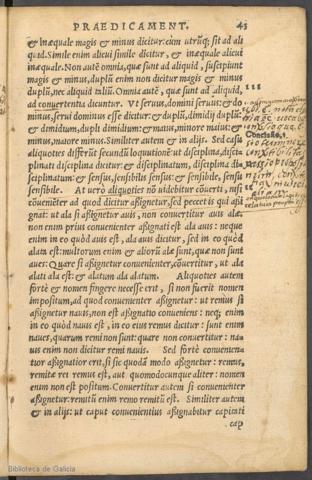 PRAEDICAMENT. 43
& inæquale magis & minus dicitur: cùm utrũq; sit ad ali
quid. Simile enim alicui simile dicitur, & inæquale alicui
inæquale. Non autē omnia, quæ sunt ad aliquid, suscipiunt
magis & minus, duplũ enim non dicitur magis & minus
duplũ, nec aliquid taliũ. Omnia autē, quæ sunt ad aliquid,
ad conuertentia dicuntur. Vt seruus, domini seruus: & do
minus, serui dominus esse dicitur: & duplũ, dimidij duplũ:
& dimidium, dupli dimidium: & maius, minore maius: &
minus, maiore minus. Similiter autem & in alijs. Sed casu
aliquoties differēt secundũ locutionē: ut disciplina, disci-
plinati disciplina dicitur: & disciplinatum, disciplina di-
sciplinatum: & sensus, sensibilis sensus: & sensibile, sensu
sensibile. At uerò aliquoties nō uidebitur cōuerti, nisi
cōuenienter ad quod dicitur assignetur, sed peccet is qui assi
gnat: ut ala si assignetur auis, non conuertitur auis alæ.
non enim prius conuenienter assignati est ala auis: neque
enim in eo quòd auis est, ala auis dicitur, sed in eo quòd
alata est: multorum enim & aliorũ alæ sunt, quæ non sunt
aues: Quare si assignetur conuenienter, cōuertitur, ut ala
alati ala est: & alatum ala alatum. Aliquoties autem
fortè & nomen fingere necesse erit, si non fuerit nomen
impositum, ad quod conuenienter assignetur: ut remus si
assignetur nauis, non est assignatio conueniens: neq; enim
in eo quòd nauis est, in eo eius remus dicitur: sunt enim
naues, quarum remi non sunt: quare non conuertitur: na-
uis enim non dicitur remi nauis. Sed fortè conuenien-
tior assignatio erit, si sic quodã modo assignetur: remus,
remitæ rei remus est, aut quomodocunque aliter: nomen
enim non est positum. Conuertitur autem si conuenienter
assignetur: remitũ enim remo remitũ est. Similiter autem
& in alijs: ut caput conuenientius assignabitur capitati
cap
III
Conclusio
Biblioteca de Galicia